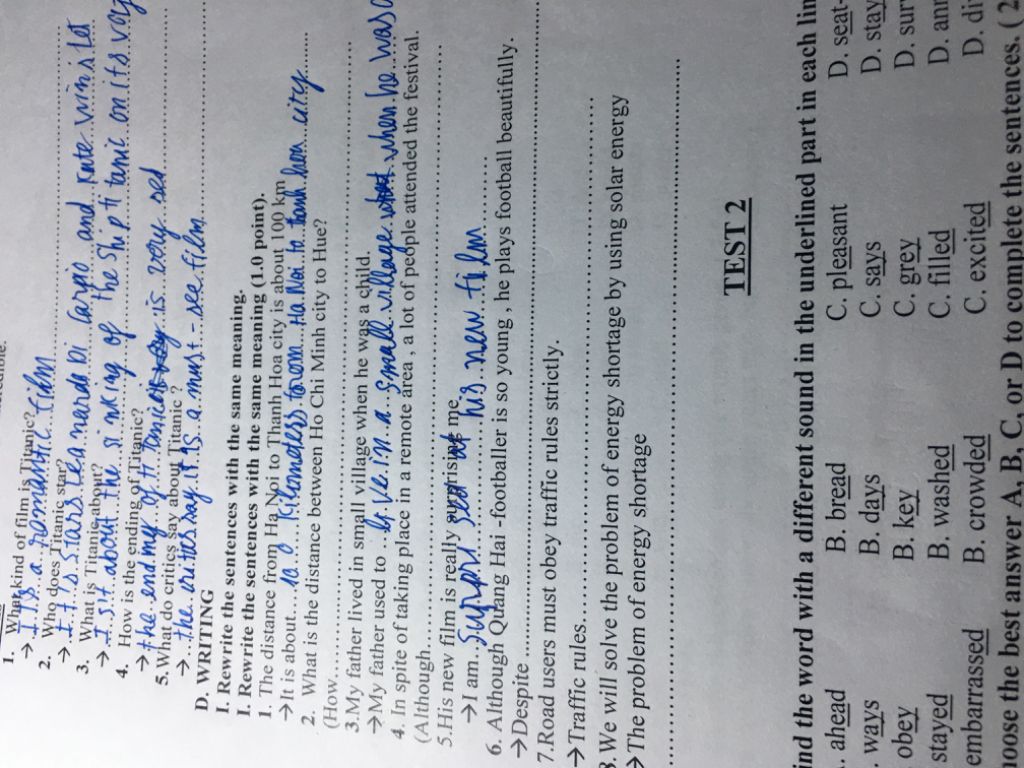 1. What kind of film is Titanic?
→ It is a romantic film
2. Who does Titanic star?
→ It is stars Leanardo Di Carpio and Kate winns let
3. What is Titanic about?
→ Is it about the si nking of the Ship Ti tanic on its
4. How is the ending of Titanic?
→ the endimy of Ti tanic is very sed
5. What do critics say about Titanic ?
→ the critics say it is a must - see film
D. WRITING
I. Rewrite the sentences with the same meaning.
I. Rewrite the sentences with the same meaning (1.0 point).
1. The distance from Ha Noi to Thanh Hoa city is about 100 km
→It is about 100 Kilometess from Ha Noi to Thanh Hoa city
2. What is the distance between Ho Chi Minh city to Hue?
(How
3.My father lived in small village when he was a child.
→My father used to live in a small village when he was
4. In spite of taking place in a remote area , a lot of people attended the festival.
(Although
5.His new film is really surprising me
→I am suprised at his new film
6. Although Quang Hai -footballer is so young , he plays football beautifully.
→Despite
7.Road users must obey traffic rules strictly.
→Traffic rules
8. We will solve the problem of energy shortage by using solar energy
→The problem of energy shortage
TEST 2
ind the word with a different sound in the underlined part in each lin
. ahead B. bread C. pleasant D. seat-
. ways B. days C. says D. stay
obey B. key C. grey D. sur
stayed B. washed C. filled D. ann
embarrassed B. crowded C. excited D. di
hoose the best answer A, B, C, or D to complete the sentences. ( 2